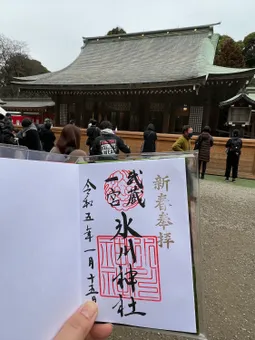 新春奉拝
武蔵
一宮
氷川神社
令和五年一月十五日